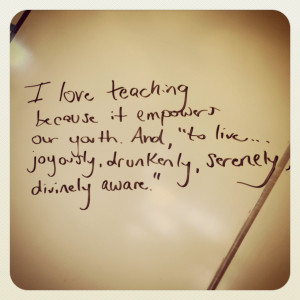 I love teaching
because it empowers
our youth. And, "to live...
joyously, drunkenly, serenely,
divinely aware."